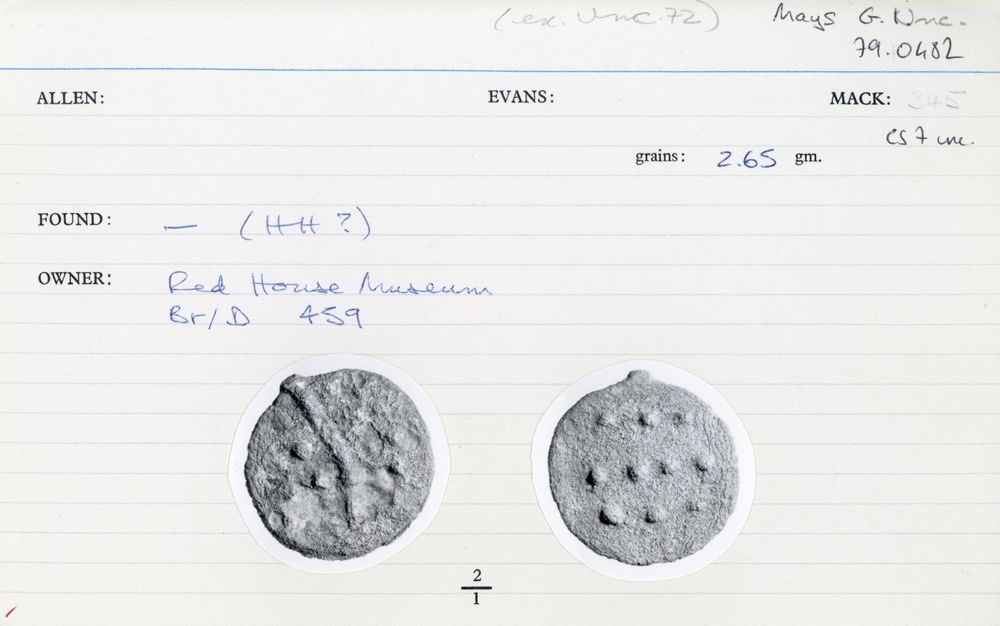 (ex. Unc. 72) Mays G. Unc.
79.0482
ALLEN: EVANS: MACK: 345
CS 7 unc.
grains: 2.65 gm.
FOUND: — (HH ?)
OWNER: Red House Museum
Br/D 459
2
1